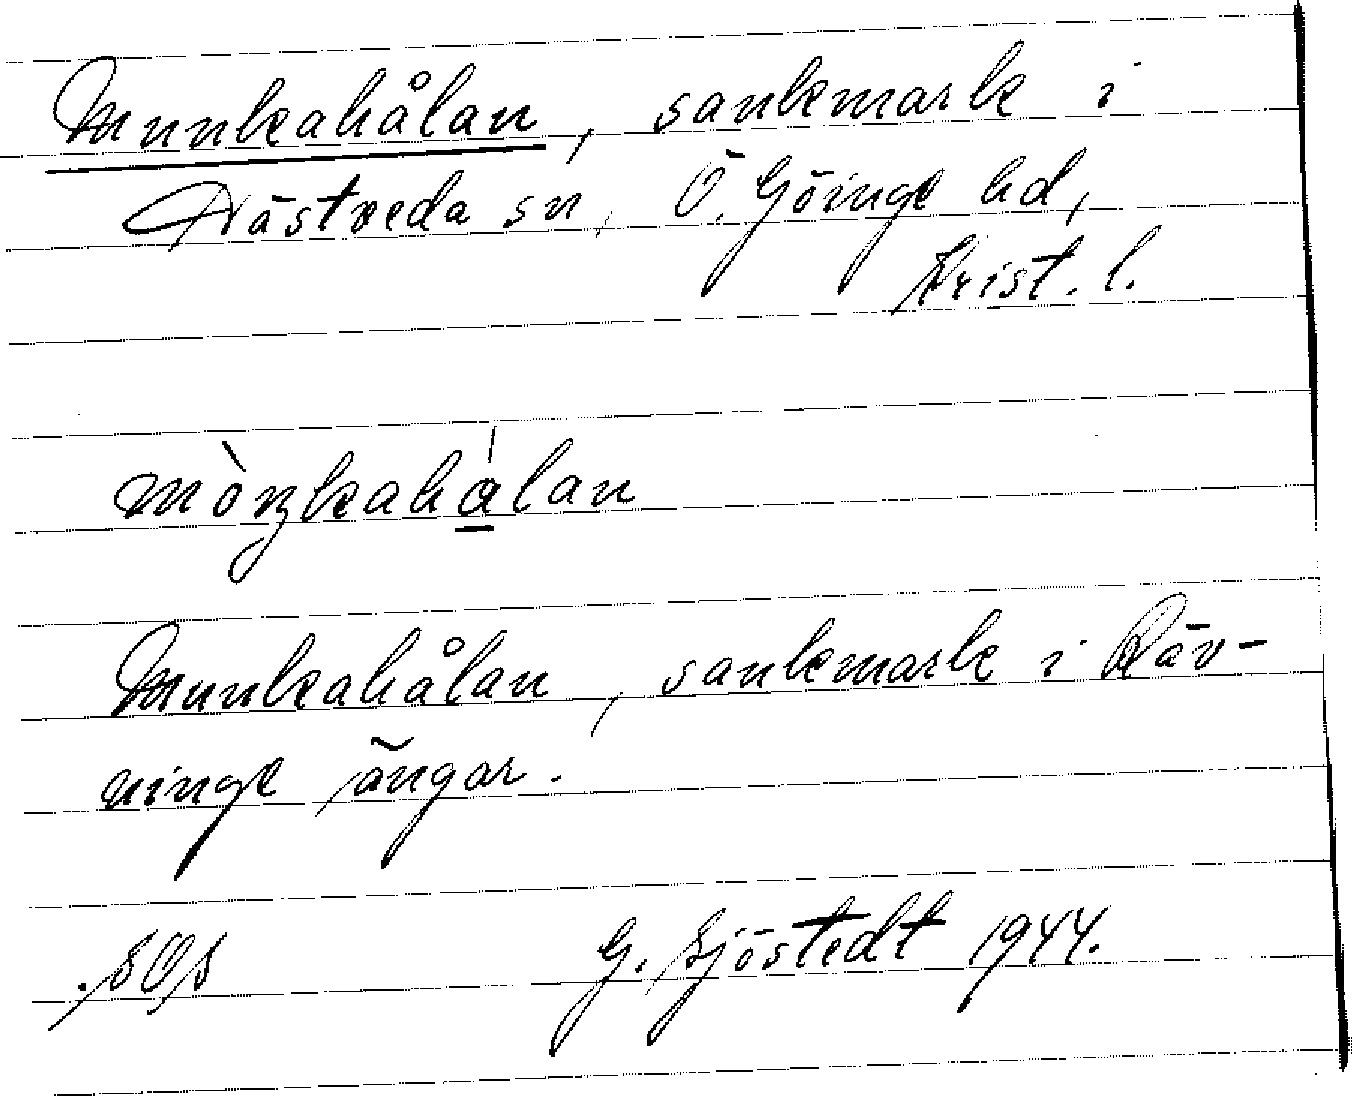 Munkahålan, sankmark i
Nåstveda sn, Ö. Göinge hd,
Krist. l.
mòŋkahálan
Munkahålan, sankmark i Räv-
ninge ängar.
G. Sjöstedt 1944.